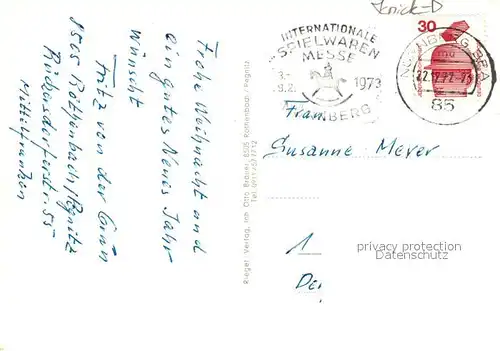 Frohe Weihnacht und
ein gutes Neues Jahr
wünscht
Fritz von der Grün
8505 Röthenbach/Pegnitz
Rückersdorferstr. 55
Mittelfranken
Rieger Verlag, Inh. Otto Brauer, 8505 Röthenbach / Pegnitz
INTERNATIONALE
SPIELWAREN
MESSE
1973
NBERG
30
22.12.72-23
85
Frau
Susanne Meyer
1
De
privacy protection
Datenschutz